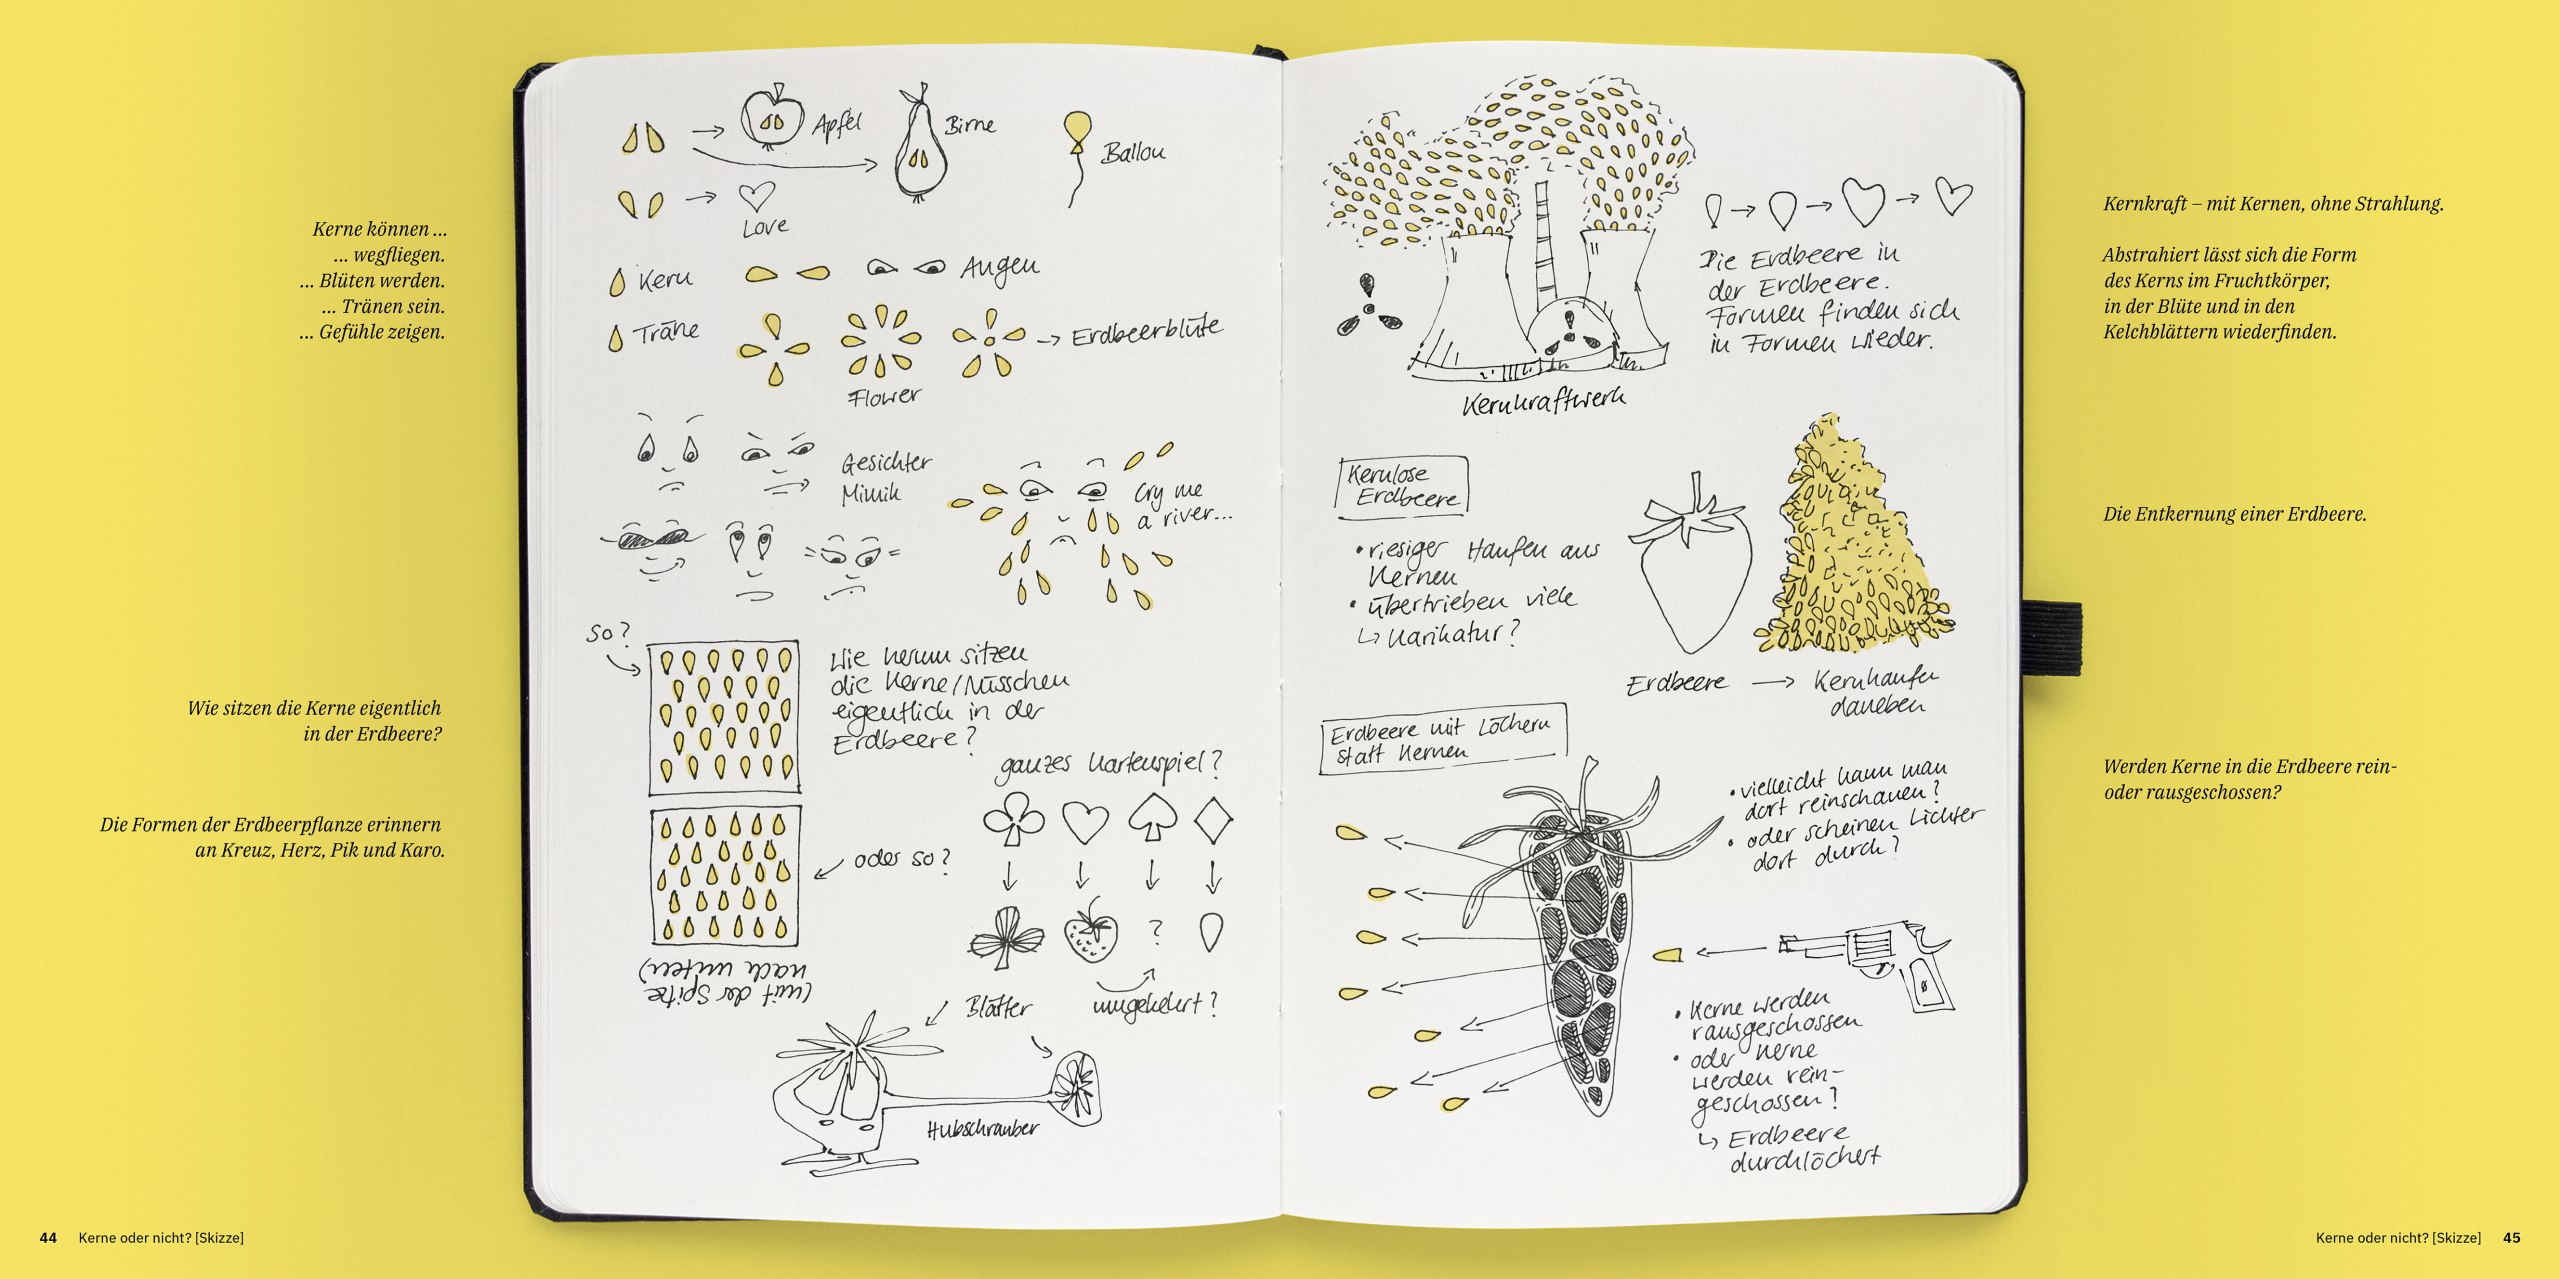 Kerne können ...
... wegfliegen.
... Blüten werden.
... Tränen sein.
... Gefühle zeigen.
Wie sitzen die Kerne eigentlich
in der Erdbeere?
Die Formen der Erdbeerpflanze erinnern
an Kreuz, Herz, Pik und Karo.
Apfel
Birne
Ballon
Love
Kern
Augen
Träne
Erdbeerblüte
Flower
Gesichter
Mimik
Cry me
a river...
so?
Wie herum sitzen
die Kerne/Nüsschen
eigentlich in der
Erdbeere?
ganzes Kartenspiel?
oder so?
?
(mit der Spitze
nach unten)
Blätter
umgekehrt?
Hubschrauber
Die Erdbeere in
der Erdbeere.
Formen finden sich
in Formen wieder.
Kernkraftwerk
Kernlose
Erdbeere
• riesiger Haufen aus
Kernen
• übertrieben viele
↳ Karikatur?
Erdbeere → Kernhaufen
daneben
Erdbeere mit Löchern
statt Kernen
• vielleicht kann man
dort reinschauen?
• oder scheinen Lichter
dort durch?
• Kerne werden
rausgeschossen
• oder Kerne
werden rein-
geschossen?
↳ Erdbeere
durchlöchert
Kernkraft – mit Kernen, ohne Strahlung.
Abstrahiert lässt sich die Form
des Kerns im Fruchtkörper,
in der Blüte und in den
Kelchblättern wiederfinden.
Die Entkernung einer Erdbeere.
Werden Kerne in die Erdbeere rein-
oder rausgeschossen?
44 Kerne oder nicht? [Skizze]
Kerne oder nicht? [Skizze] 45